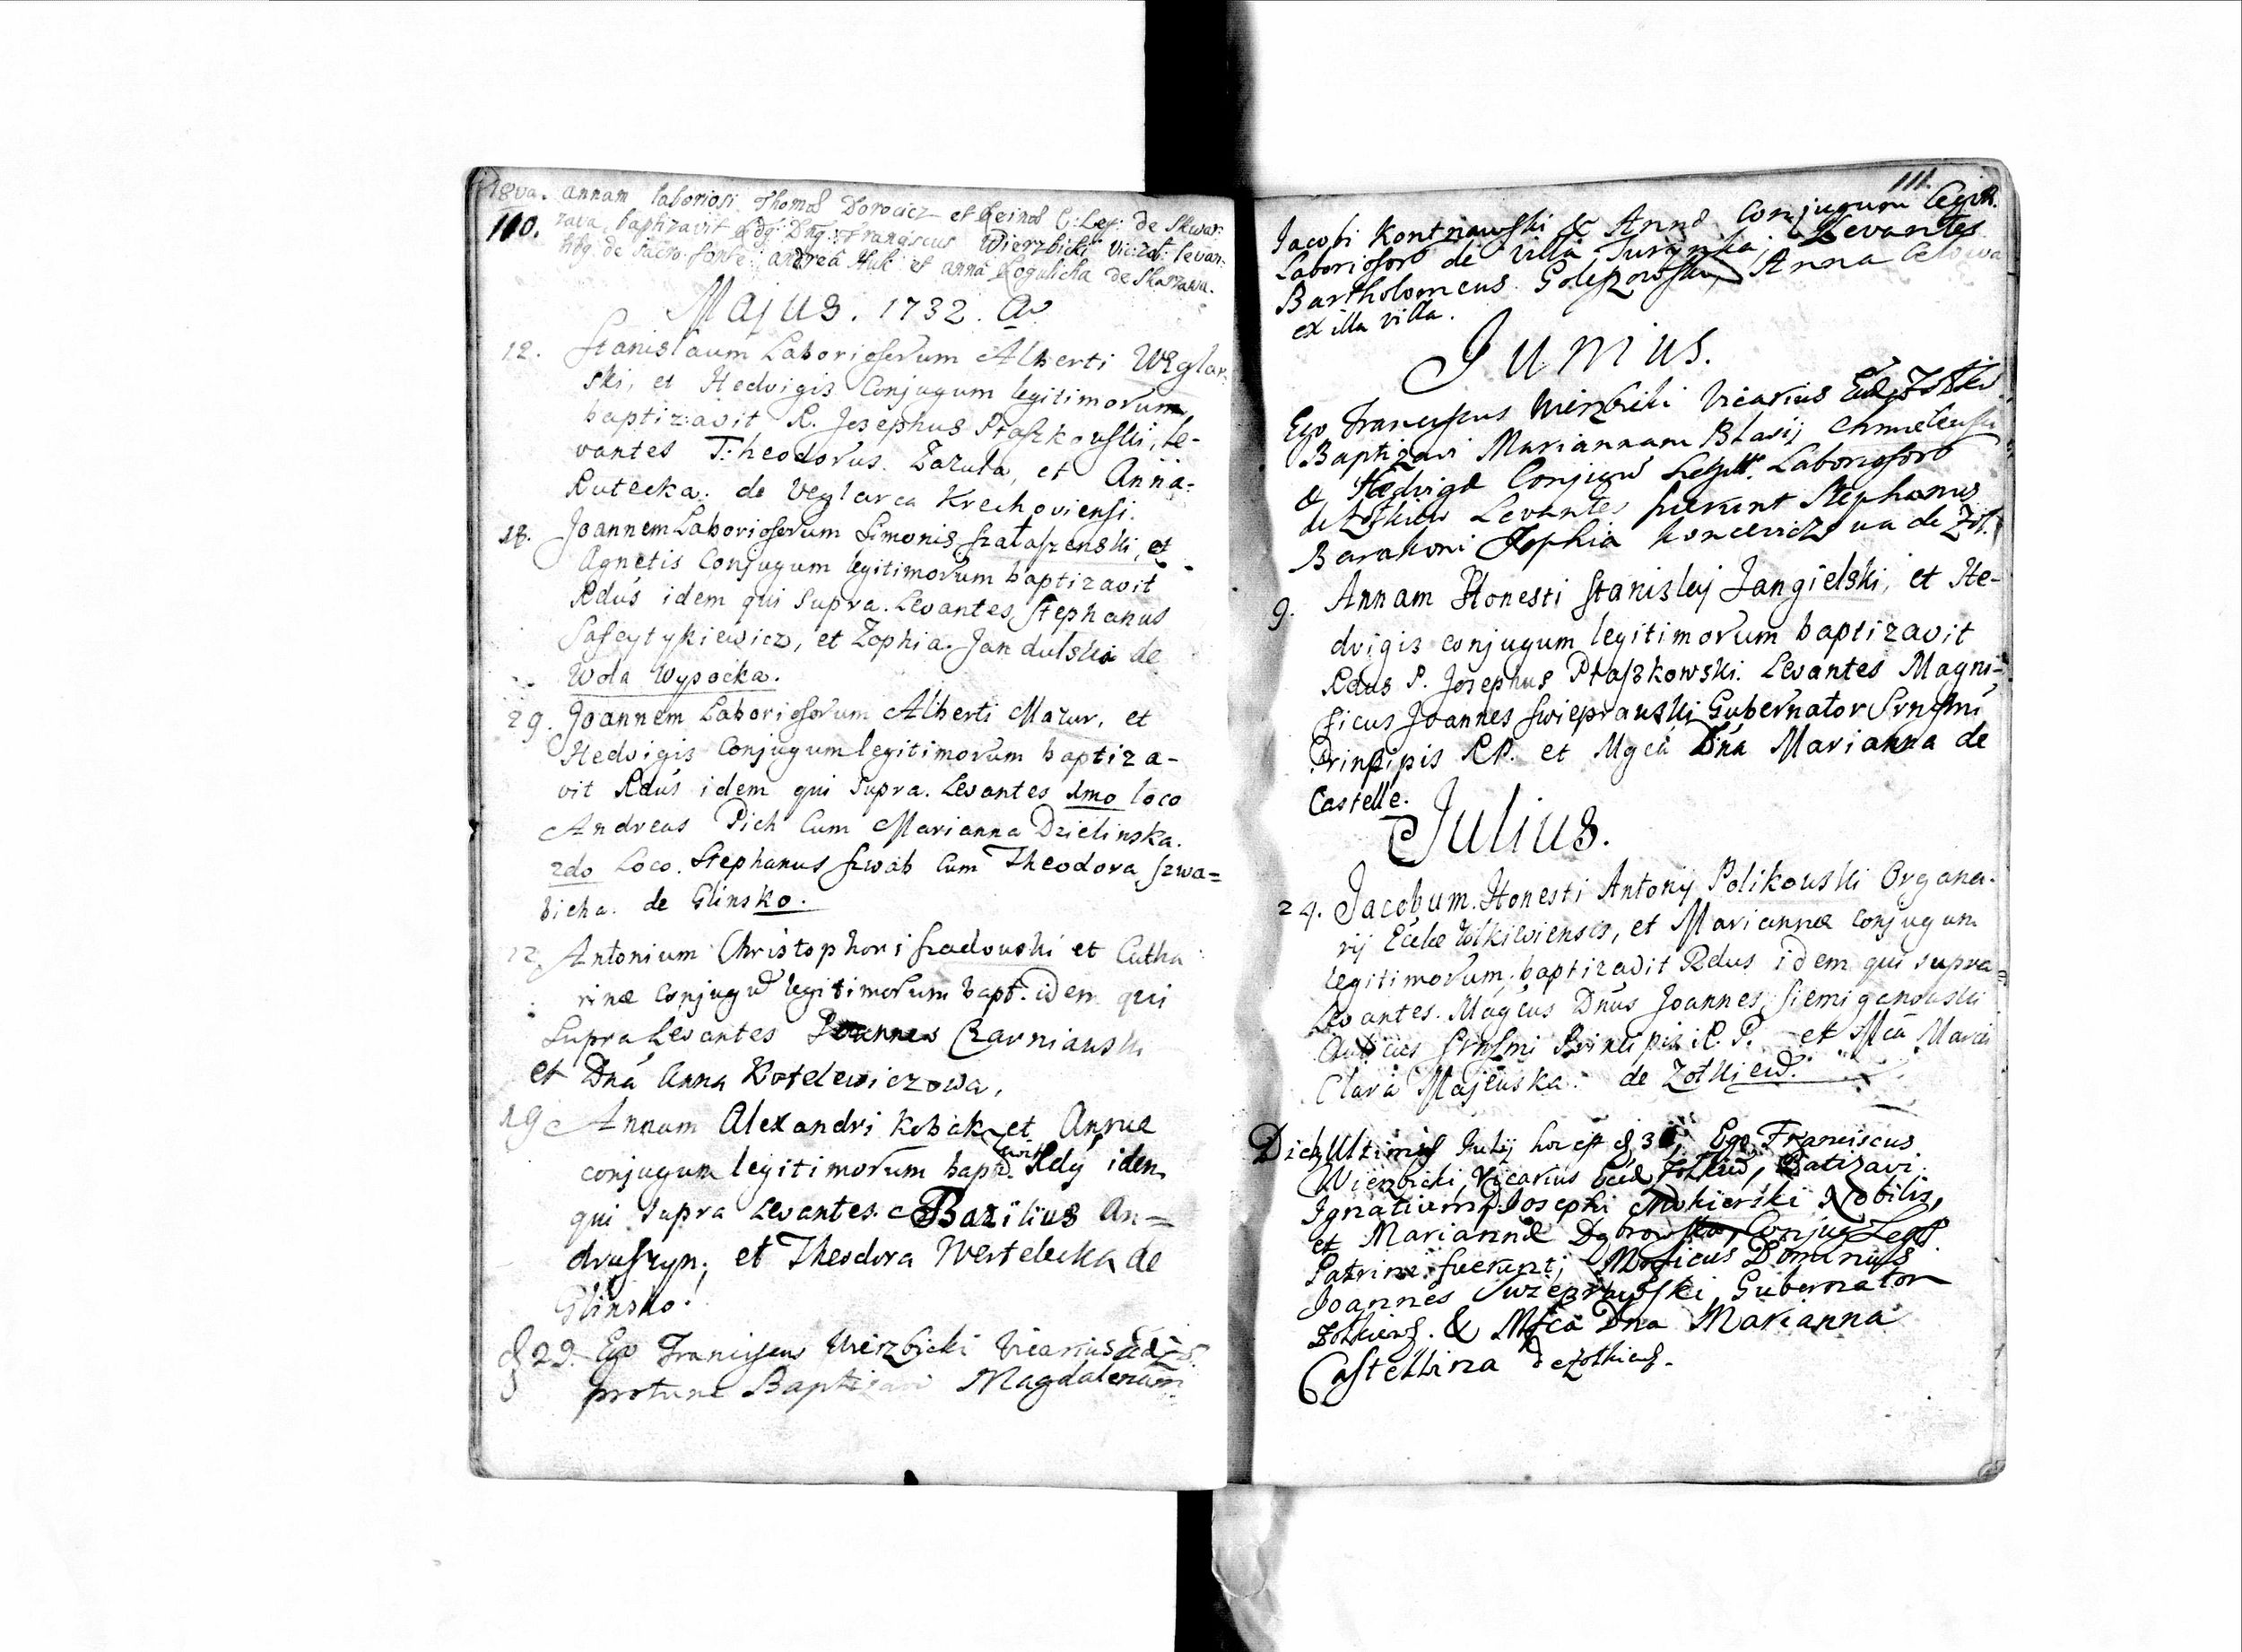 18va. Annam laboriosi Thomæ Dorocicz et Reinæ C: Leg: de Skwar:
110. zava, baptizavit Rdg: Dng: Franciscus Wierzbicki Vic: Zol: levan:
tibg de sacro fonte: andrea Huk et anna Rogulicha de Skarzawa.
Majus. 1732. Ao
12. Stanislaum Laboriosorum Alberti Węglar:
ski, et Hedvigis Conjugum legitimorum,
baptizavit R. Josephus Ptaszkowski, le-
vantes Theodorus Zazula, et Anna
Rutecka. de Veglarca Krechoviensi.
18. Joannem Laboriosorum Simonis Szałaszenski, et
Agnetis Conjugum legitimorum baptizavit
Rdus idem qui Supra. Levantes Stephanus
et Zophia Jandulska de
Wola Wysocka.
29. Joannem Laboriosorum Alberti Mazur, et
Hedvigis Conjugum legitimorum baptiza-
vit Rdus idem qui Supra. Levantes Imo loco
Andreas Pich Cum Marianna Dzielinska.
2do Loco. Stephanus Szwab Cum Theodora Szwa=
bicha. de Glinsko.
12 Antonium Christophori Szadouski et Catha
rinæ Conjugū legitimorum bapt. idem qui
Supra Levantes Joannes Czarniauski
et Dna Anna Kotelewiczowa,
19 Annam Alexandri Kobak et Annæ
conjugum legitimorum bapt. Rdg idem
qui Supra Levantes Bazilius An=
druszyn; et Theodora Wertelecka de
Glinsko.
d 29. Ego Franciscus Wierzbicki Vicarius
protunc Baptizavi Magdalenam
111.
Jacobi Kontnawski & Annæ Conjugum Legitt.
Laboriosorū de Villa Turynka. Levantes
Bartholomeus Anna
ex illa villa.
Junius.
Ego Franciscus Wierzbicki Vicarius Eccl. Zołkw
Baptizavi Mariannam Blasij
& Hedvigæ Conjugū Legitt. Laboriosorū
de Zołkiew Levantes fuerunt Stephanus
Barakoni Zophia de Zoł.
9. Annam Honesti Stanislaj Jangielski, et He-
dvigis conjugum legitimorum baptizavit
Rdus P. Josephus Ptaszkowski. Levantes Magni-
ficus Joannes Swieprauski Gubernator Srnssmi
Principis RP. et Mgca Dna Marianna de
Castelle.
Julius.
24. Jacobum Honesti Antonij Polikouski Organa-
rij Eccle Zołkieviensis, et Mariannæ Conjugum
legitimorum, baptizavit Rdus idem qui supra
Levantes. Magcus Dnus Joannes Siemiganouski
Aulicus Srnssmi Principis R. P. et Mca Maria
Clara Majeuska. de Zołkiew.
Die Ultimis Julij hoc est d 31 Ego Franciscus
Wierzbicki Vicarius Eccl. Zołkiew, Batizavi
Ignatium Josephi Mokierski Nobilis,
et Mariannæ Dąbrowska, Conjug Legit.
Patrini fuerunt; Mgficus Dominus
Joannes Swieprawski, Gubernator
Zołkiens. & Mgfca Dna Marianna
Castellina de Zołkiew.